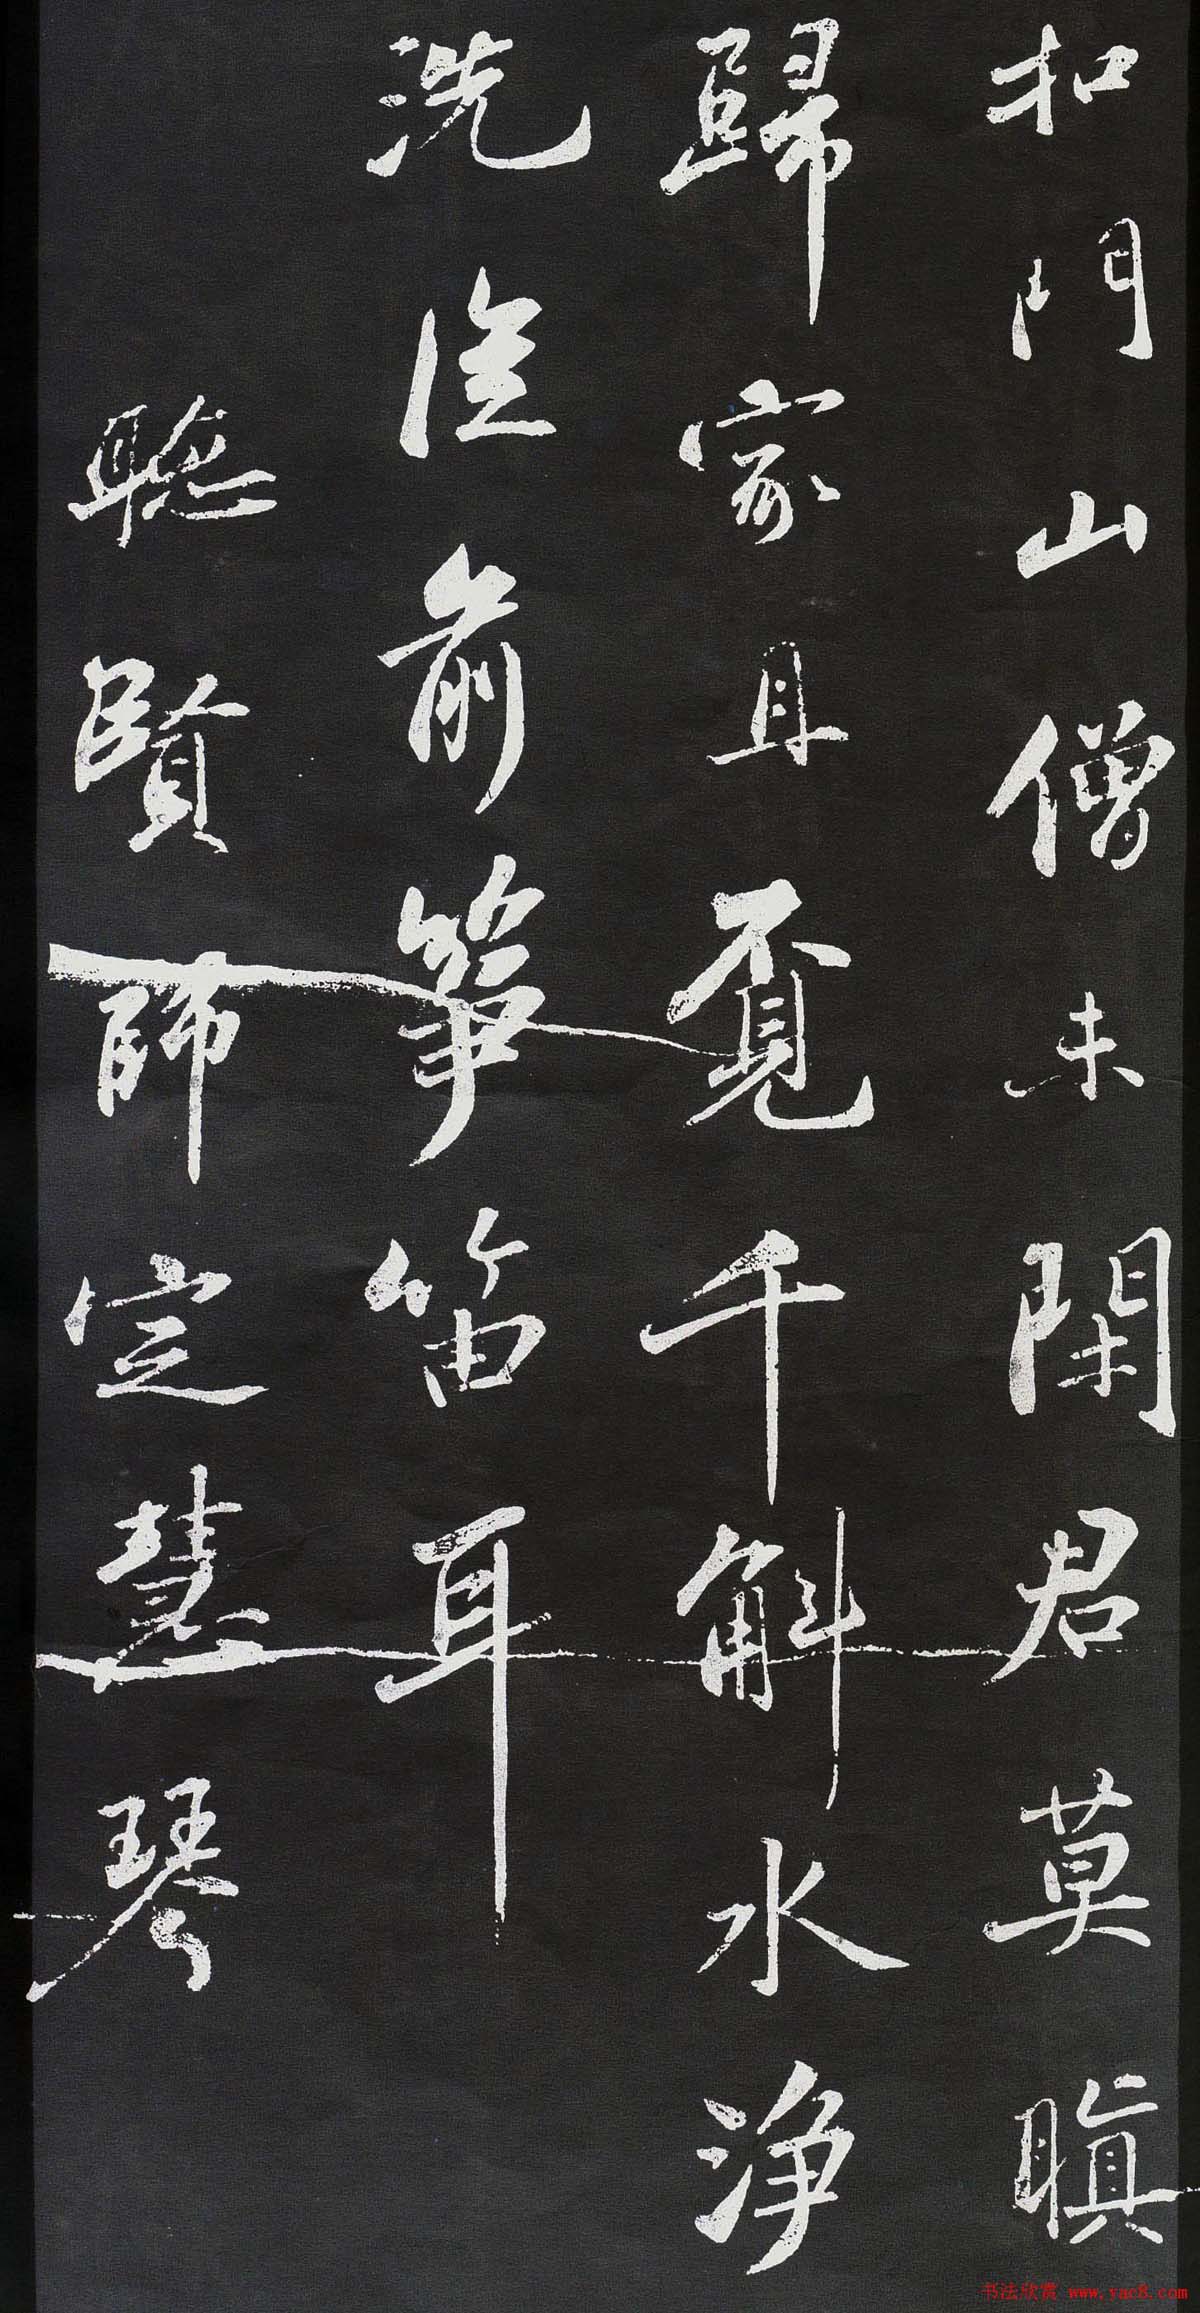 扣門山僧未閑君莫瞋
歸家且覔千斛水净
洗從前筝笛耳
聴賢師定慧琴
书法欣赏 www.yac8.com